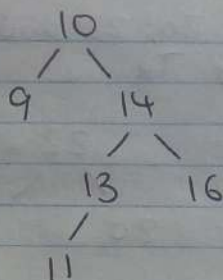 10
9 14
13 16
11